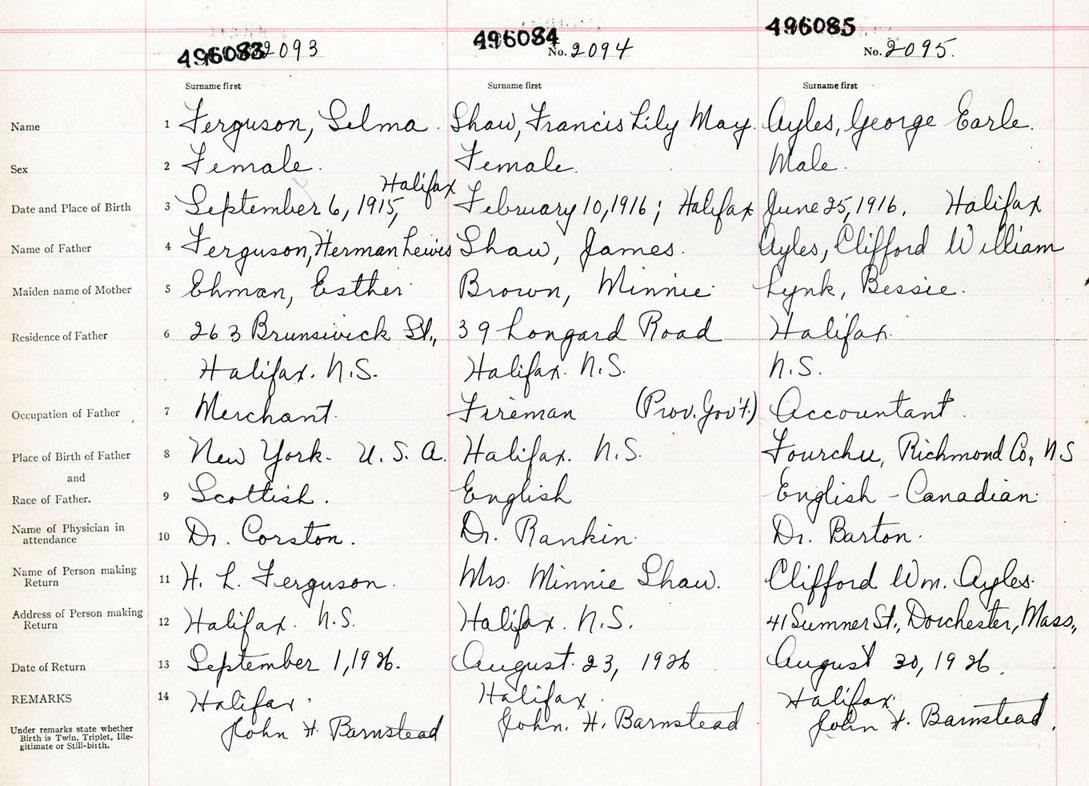 496083 2093 496084 No. 2094 496085 No. 2095.
Surname first Surname first Surname first
Name 1 Ferguson, Selma. Shaw, Francis Lily May. Ayles, George Earle.
Sex 2 Female. Female. Male.
Halifax
Date and Place of Birth 3 September 6, 1915, February 10, 1916; Halifax June 25, 1916. Halifax
Name of Father 4 Ferguson, Herman Lewis Shaw, James. Ayles, Clifford William
Maiden name of Mother 5 Ehman, Esther. Brown, Minnie. Lynk, Bessie.
Residence of Father 6 263 Brunswick St., 39 Longard Road Halifax.
Halifax. N.S. Halifax. N.S. N.S.
Occupation of Father 7 Merchant. Fireman (Prov. Gov't.) Accountant.
Place of Birth of Father 8 New York. U.S.A. Halifax. N.S. Fourchu, Richmond Co, N.S
and
Race of Father. 9 Scottish. English English - Canadian.
Name of Physician in
attendance 10 Dr. Corston. Dr. Rankin. Dr. Barton.
Name of Person making
Return 11 H. L. Ferguson. Mrs. Minnie Shaw. Clifford Wm. Ayles.
Address of Person making
Return 12 Halifax. N.S. Halifax. N.S. 41 Sumner St., Dorchester, Mass.,
Date of Return 13 September 1, 1926. August 23, 1926 August 30, 1926.
REMARKS 14 Halifax. Halifax. Halifax.
Under remarks state whether John H Barnstead John. H. Barnstead John H. Barnstead.
Birth is Twin, Triplet, Ille-
gitimate or Still-birth.